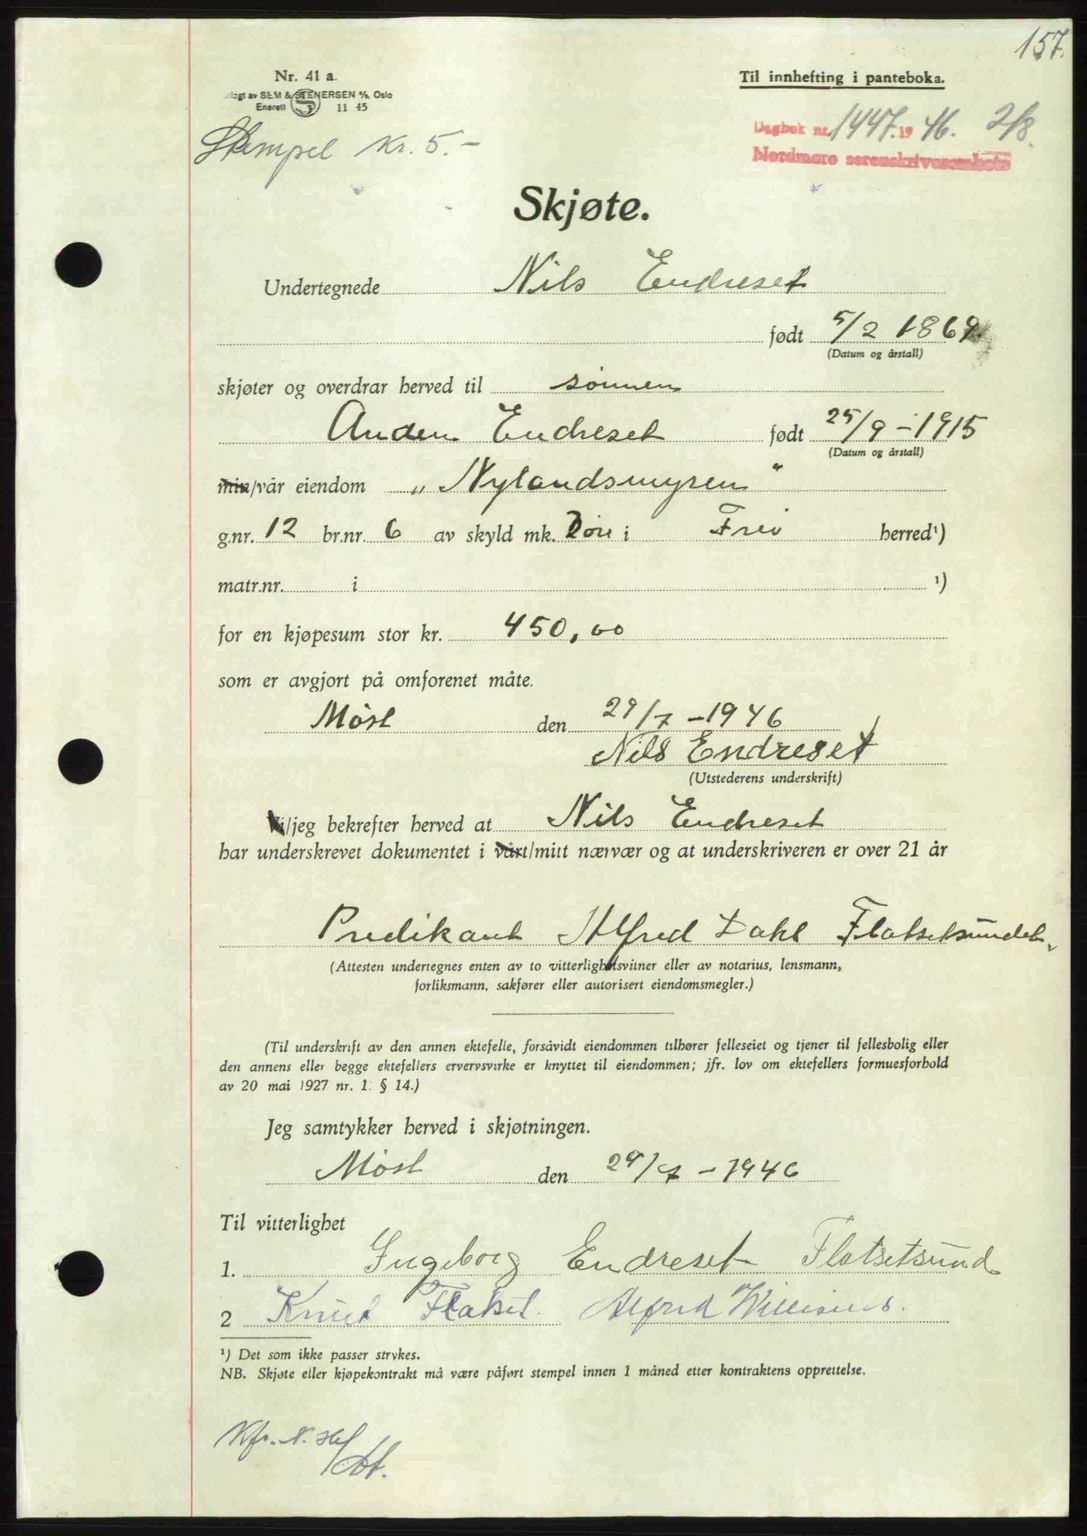 157.
Nr. 41 a.
Til innhefting i panteboka.
av SEM & STENERSEN A/S, Oslo
Enerett S 11 45
Dagbok nr. 1447. 19 46. 2/8.
Nordmøre sorenskriverembete
Stempel Kr. 5.-
Skjøte.
Undertegnede Nils Endreset
født 5/2 1869.
(Datum og årstall)
skjøter og overdrar herved til sønnen
Anders Endreset født 25/9 - 1915
(Datum og årstall)
min/vår eiendom „Nylandsmyren"
g.nr. 12 br.nr. 6 av skyld mk. 7 øre i Frei herred¹)
matr.nr. i ¹)
for en kjøpesum stor kr. 450,00
som er avgjort på omforenet måte.
Møst den 29/7 - 1946
Nils Endreset
(Utstederens underskrift)
Vi/jeg bekrefter herved at Nils Endreset
har underskrevet dokumentet i vårt/mitt nærvær og at underskriveren er over 21 år
Predikant Alfred Dahl Flatsetsundet.
(Attesten undertegnes enten av to vitterlighetsvitner eller av notarius, lensmann,
forliksmann, sakfører eller autorisert eiendomsmegler.)
(Til underskrift av den annen ektefelle, forsåvidt eiendommen tilhører felleseiet og tjener til fellesbolig eller
den annens eller begge ektefellers ervervsvirke er knyttet til eiendommen; jfr. lov om ektefellers formuesforhold
av 20 mai 1927 nr. 1. § 14.)
Jeg samtykker herved i skjøtningen.
Møst den 29/7 - 1946
Til vitterlighet
1. Ingeborg Endreset Flatsetsund
2 Knut Flatset. Alfred
¹) Det som ikke passer strykes.
NB. Skjøte eller kjøpekontrakt må være påført stempel innen 1 måned etter kontraktens opprettelse.
Kfr. N.